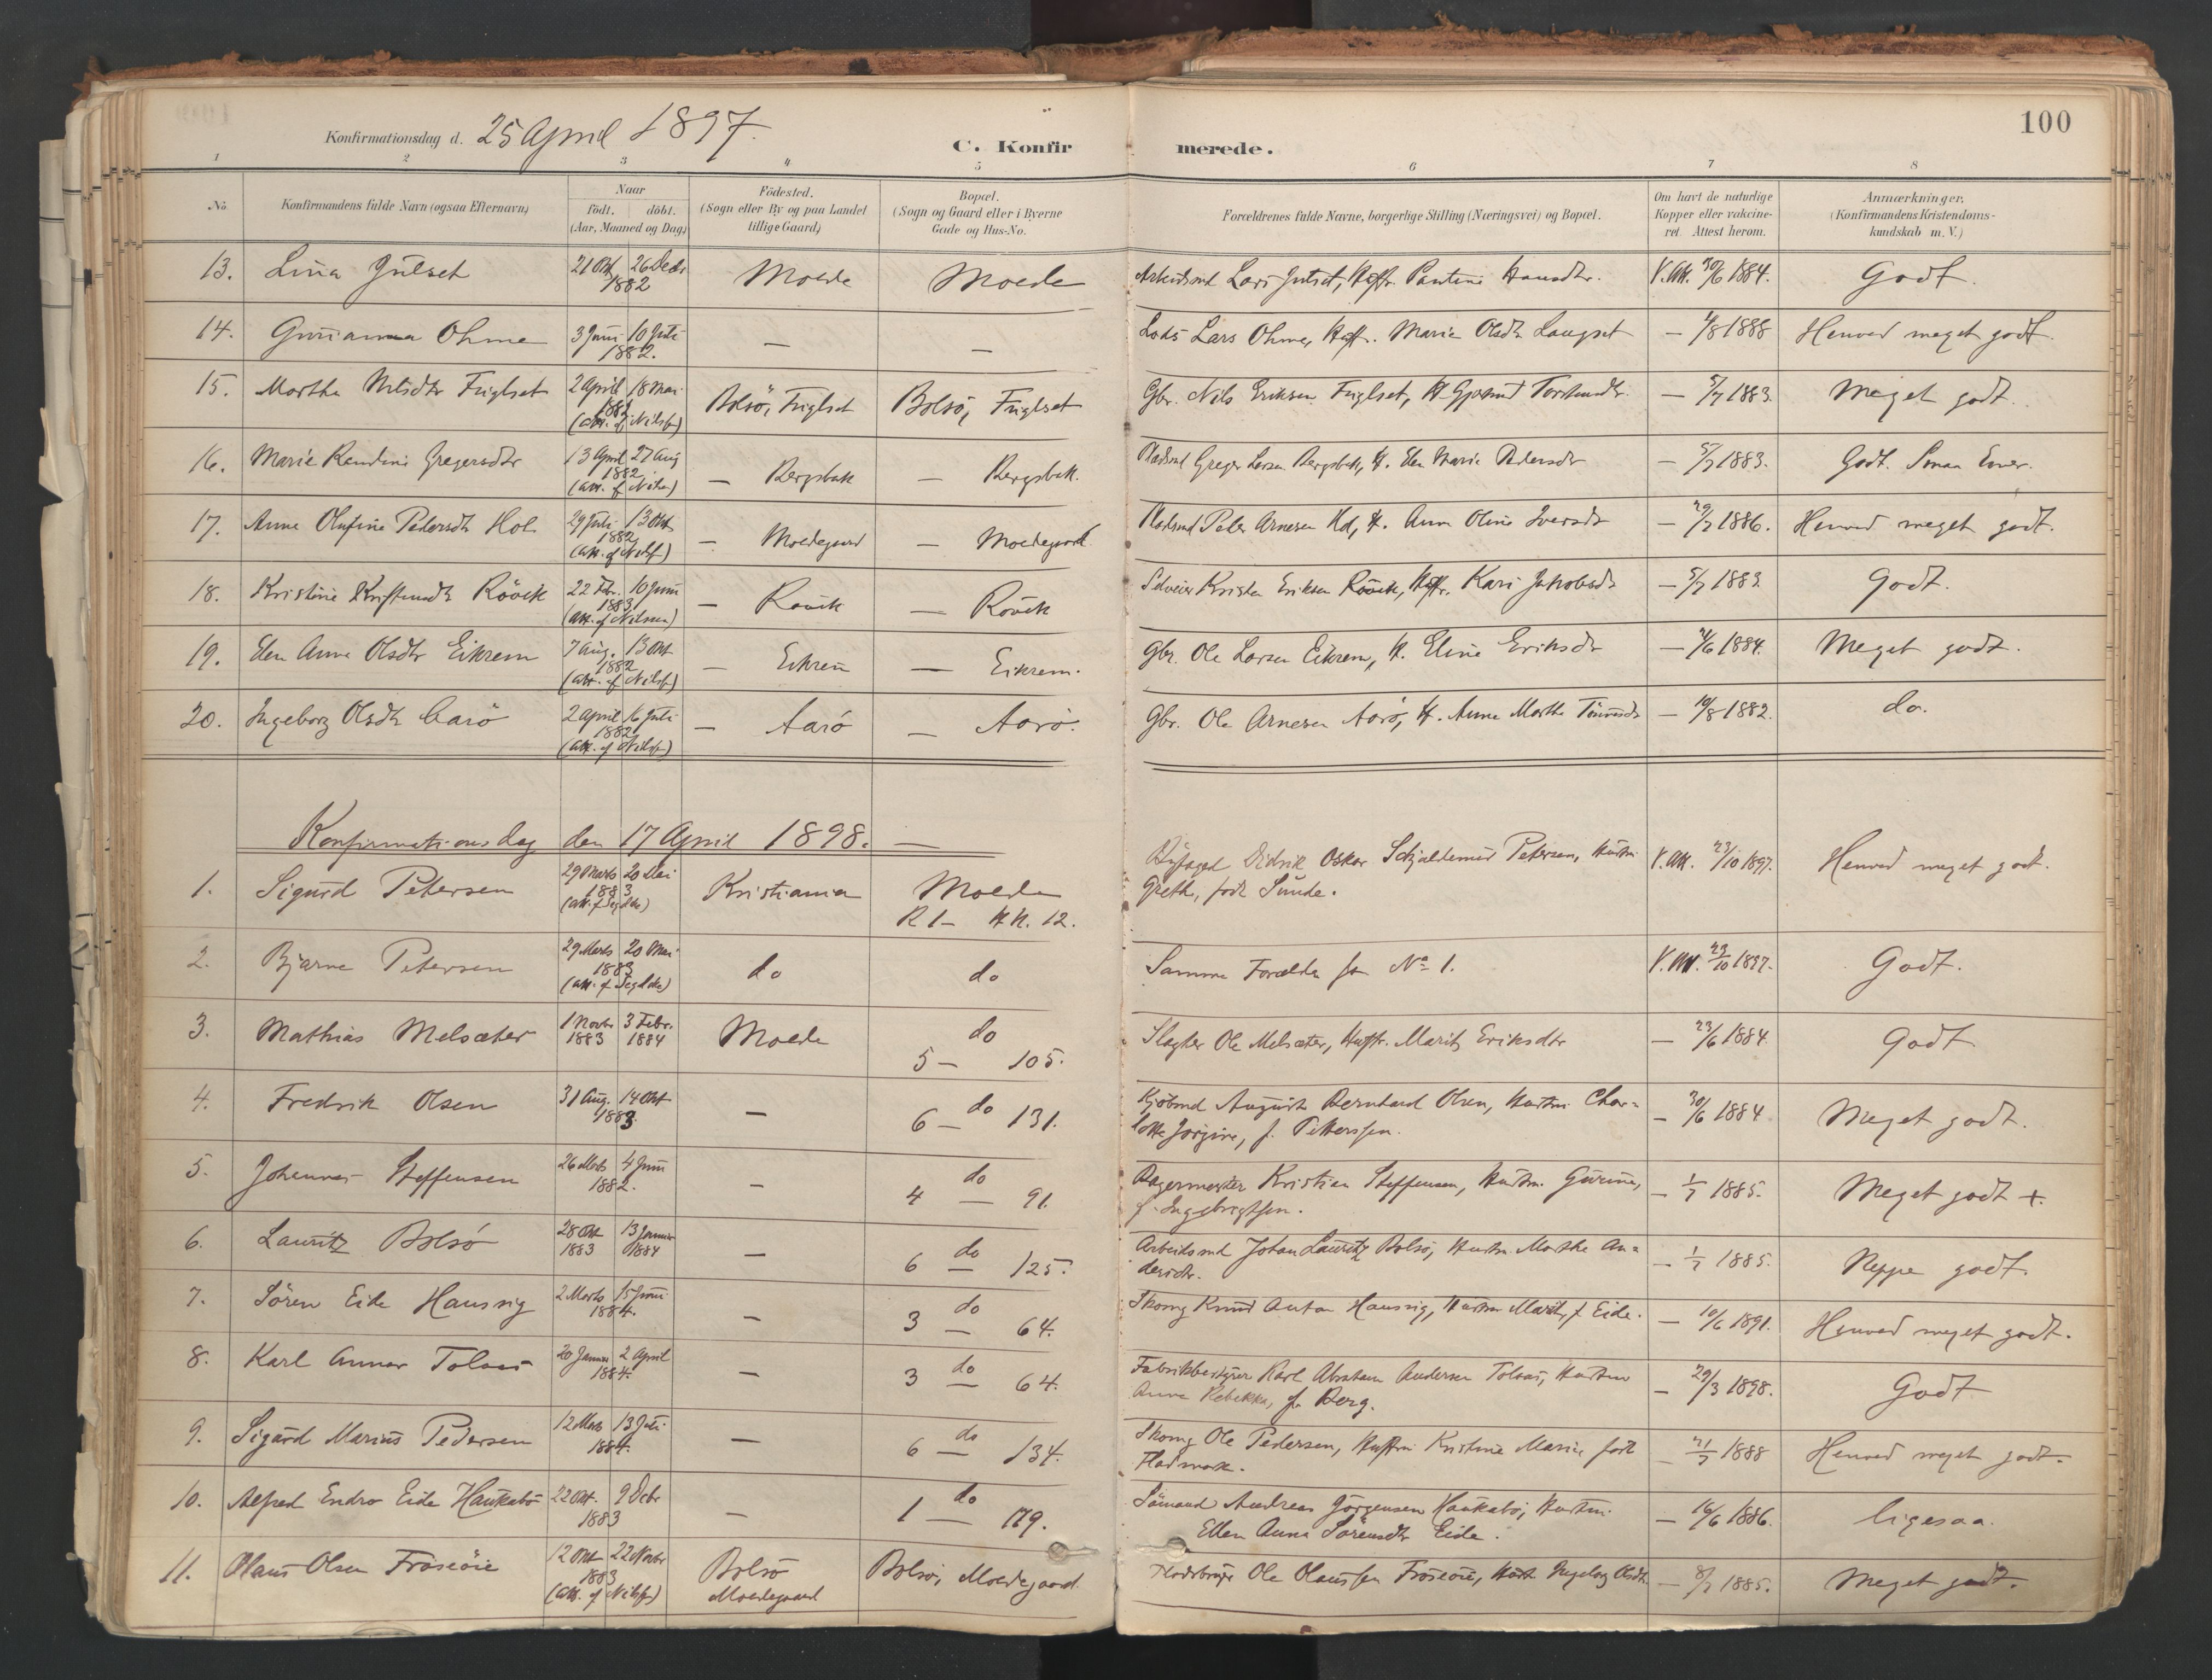 100
Konfirmationsdag d. 25 April 1897.
C. Konfirmerede.
1 2 3 4 5 6 7 8
No. Konfirmandens fulde Navn (ogsaa Efternavn) Naar födt. döbt. (Aar, Maaned og Dag) Födested. (Sogn eller By og paa Landet tillige Gaard) Bopæl. (Sogn og Gaard eller i Byerne Gade og Hus-No. Forældrenes fulde Navne, borgerlige Stilling (Næringsvei) og Bopæl. Om havt de naturlige Kopper eller vakcineret. Attest herom. Anmærkninger. (Konfirmandens Kristendomskundskab m. V.)
13. Lina Julset 21 Okt 26 Decbr 1882 Molde Molde Arbeidsmd Lars Julset, Hustr. Pauline Hansdtr. V. Att. 30/6 1884. Godt.
14. Gurianna Ohme 3 Juni 10 Juli 1882. — — Lods Lars Ohme, Hustr. Marie Olsdtr Langset — 4/8 1888 Henved meget godt.
15. Marthe Nilsdtr Fuglset 2 April 18 Mai 1882 (att. af Nilsson) Bolsö, Fuglset Bolsö, Fuglset Gbr. Nils Eriksen Fuglset, H. Gjertrud Torstensdtr. — 5/7 1883. Meget godt.
16. Marie Randine Gregersdtr 13 April 27 Aug 1882 — Bergsbak — Bergsbak. Pladsmd Greger Larsen Bergsbak, H. Elen Marie Pedersdtr — 5/7 1883. Godt.
17. Anne Olufine Pedersdtr Hol 29 Juli 13 Okt 1882 — Moldegaard — Moldegaard. Pladsmd Peder Arnesen Hol, H. Anne Oline Iversdtr — 29/7 1886. Henved meget godt.
18. Kristine Kristensdtr Rövik 22 Febr. 10 Juni 1883 — Rövik — Rövik Selveier Kristen Eriksen Rövik, Hustr. Kari Jakobsdtr — 5/7 1883. Godt.
19. Elen Anne Olsdtr Eikrem 7 Aug. 13 Okt 1882 — Eikrem — Eikrem. Gbr. Ole Larsen Eikrem, H. Eline Eriksdtr — 4/6 1884. Meget godt.
20. Ingeborg Olsdtr Aarö 2 April 16 Juli 1882 — Aarö — Aarö. Gbr. Ole Arnesen Aarö, H. Anne Marthe — 10/8 1882. do.
Konfirmationsdag den 17 April 1898. —
1. Sigurd Petersen 29 Marts 20 Mai 1883 Kristiania Molde R 1 — H.N. 12. Byfoged Didrik Oskar Schjaldemus Petersen, Hustru Grethe, född Sunde. V. Att. 23/10 1897. Henved meget godt.
2. Bjarne Petersen 29 Marts 20 Mai 1883 do do Samme Forældre som No 1. V. Att. 23/10 1897. Godt.
3. Mathias Melsæter 1 Novbr 1883 3 Febr. 1884 Molde do 5 — 105. Slagter Ole Melsæter, Hustr. Marit Eriksdtr — 23/6 1884. Godt
4. Fredrik Olsen 31 Aug. 14 Okt 1883. — do 6 — 131. Kjöbmd August Bernhard Olsen, Hustru Charlotte Jorgine, f. Petterssen. — 30/6 1884 Meget godt.
5. Johannes Steffensen 26 Marts 4 Juni 1882. — do 4 — 91. Bagermester Kristian Steffensen, Hustru Gurine, f. Ingebrigtsen. — 1/7 1885. Meget godt +.
6. Lauritz Bolsö 28 Okt 1883 13 Januar 1884 — do 6 — 125. Arbeidsmd Johan Lauritz Bolsö, Hustru Marthe Andersdtr. — 1/7 1885. Neppe godt.
7. Sören Eide Hausvig 2 Marts 15 Juni 1884. — do 3 — 64. Skomg Knud Anton Hausvig, Hustru Marit, f. Eide. — 10/6 1891. Henved meget godt.
8. Karl Annar Tolaas 20 Januar 2 April 1884. — do 3 — 64. Fabrikbestyrer Karl Abraham Andersen Tolaas, Hustru Anna Rebekka, f. Berg. — 29/3 1898. Godt
9. Sigurd Marius Pedersen 12 Marts 13 Juli 1884. — do 6 — 134. Skomg Ole Pedersen, Hustru Kristine Marie född Fladmark. — 21/7 1888 Henved meget godt.
10. Alfred Endre Eide Haukabö 22 Okt. 9 Decbr 1883 — do 1 — 179. Sömand Andreas Jörgensen Haukabö, Hustru Ellen Anna Sörensdtr Eide. — 16/6 1886. ligesaa.
11. Olaus Olsen Fröseöie 12 Okt 22 Novbr 1883 Bolsö Moldegaard Bolsö, Moldegaard Pladsbruger Ole Olaussen Fröseöie, Hustr Ingeborg Olsdtr — 8/7 1885. Meget godt.